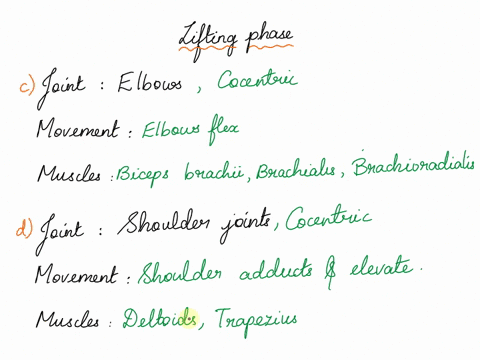 Lifting phase
c) Joint : Elbows , Cocentric
Movement : Elbows flex
Muscles : Biceps brachii, Brachialis, Brachioradialis
d) Joint : Shoulder joints, Cocentric
Movement : Shoulder adducts & elevate.
Muscles : Deltoids, Trapezius